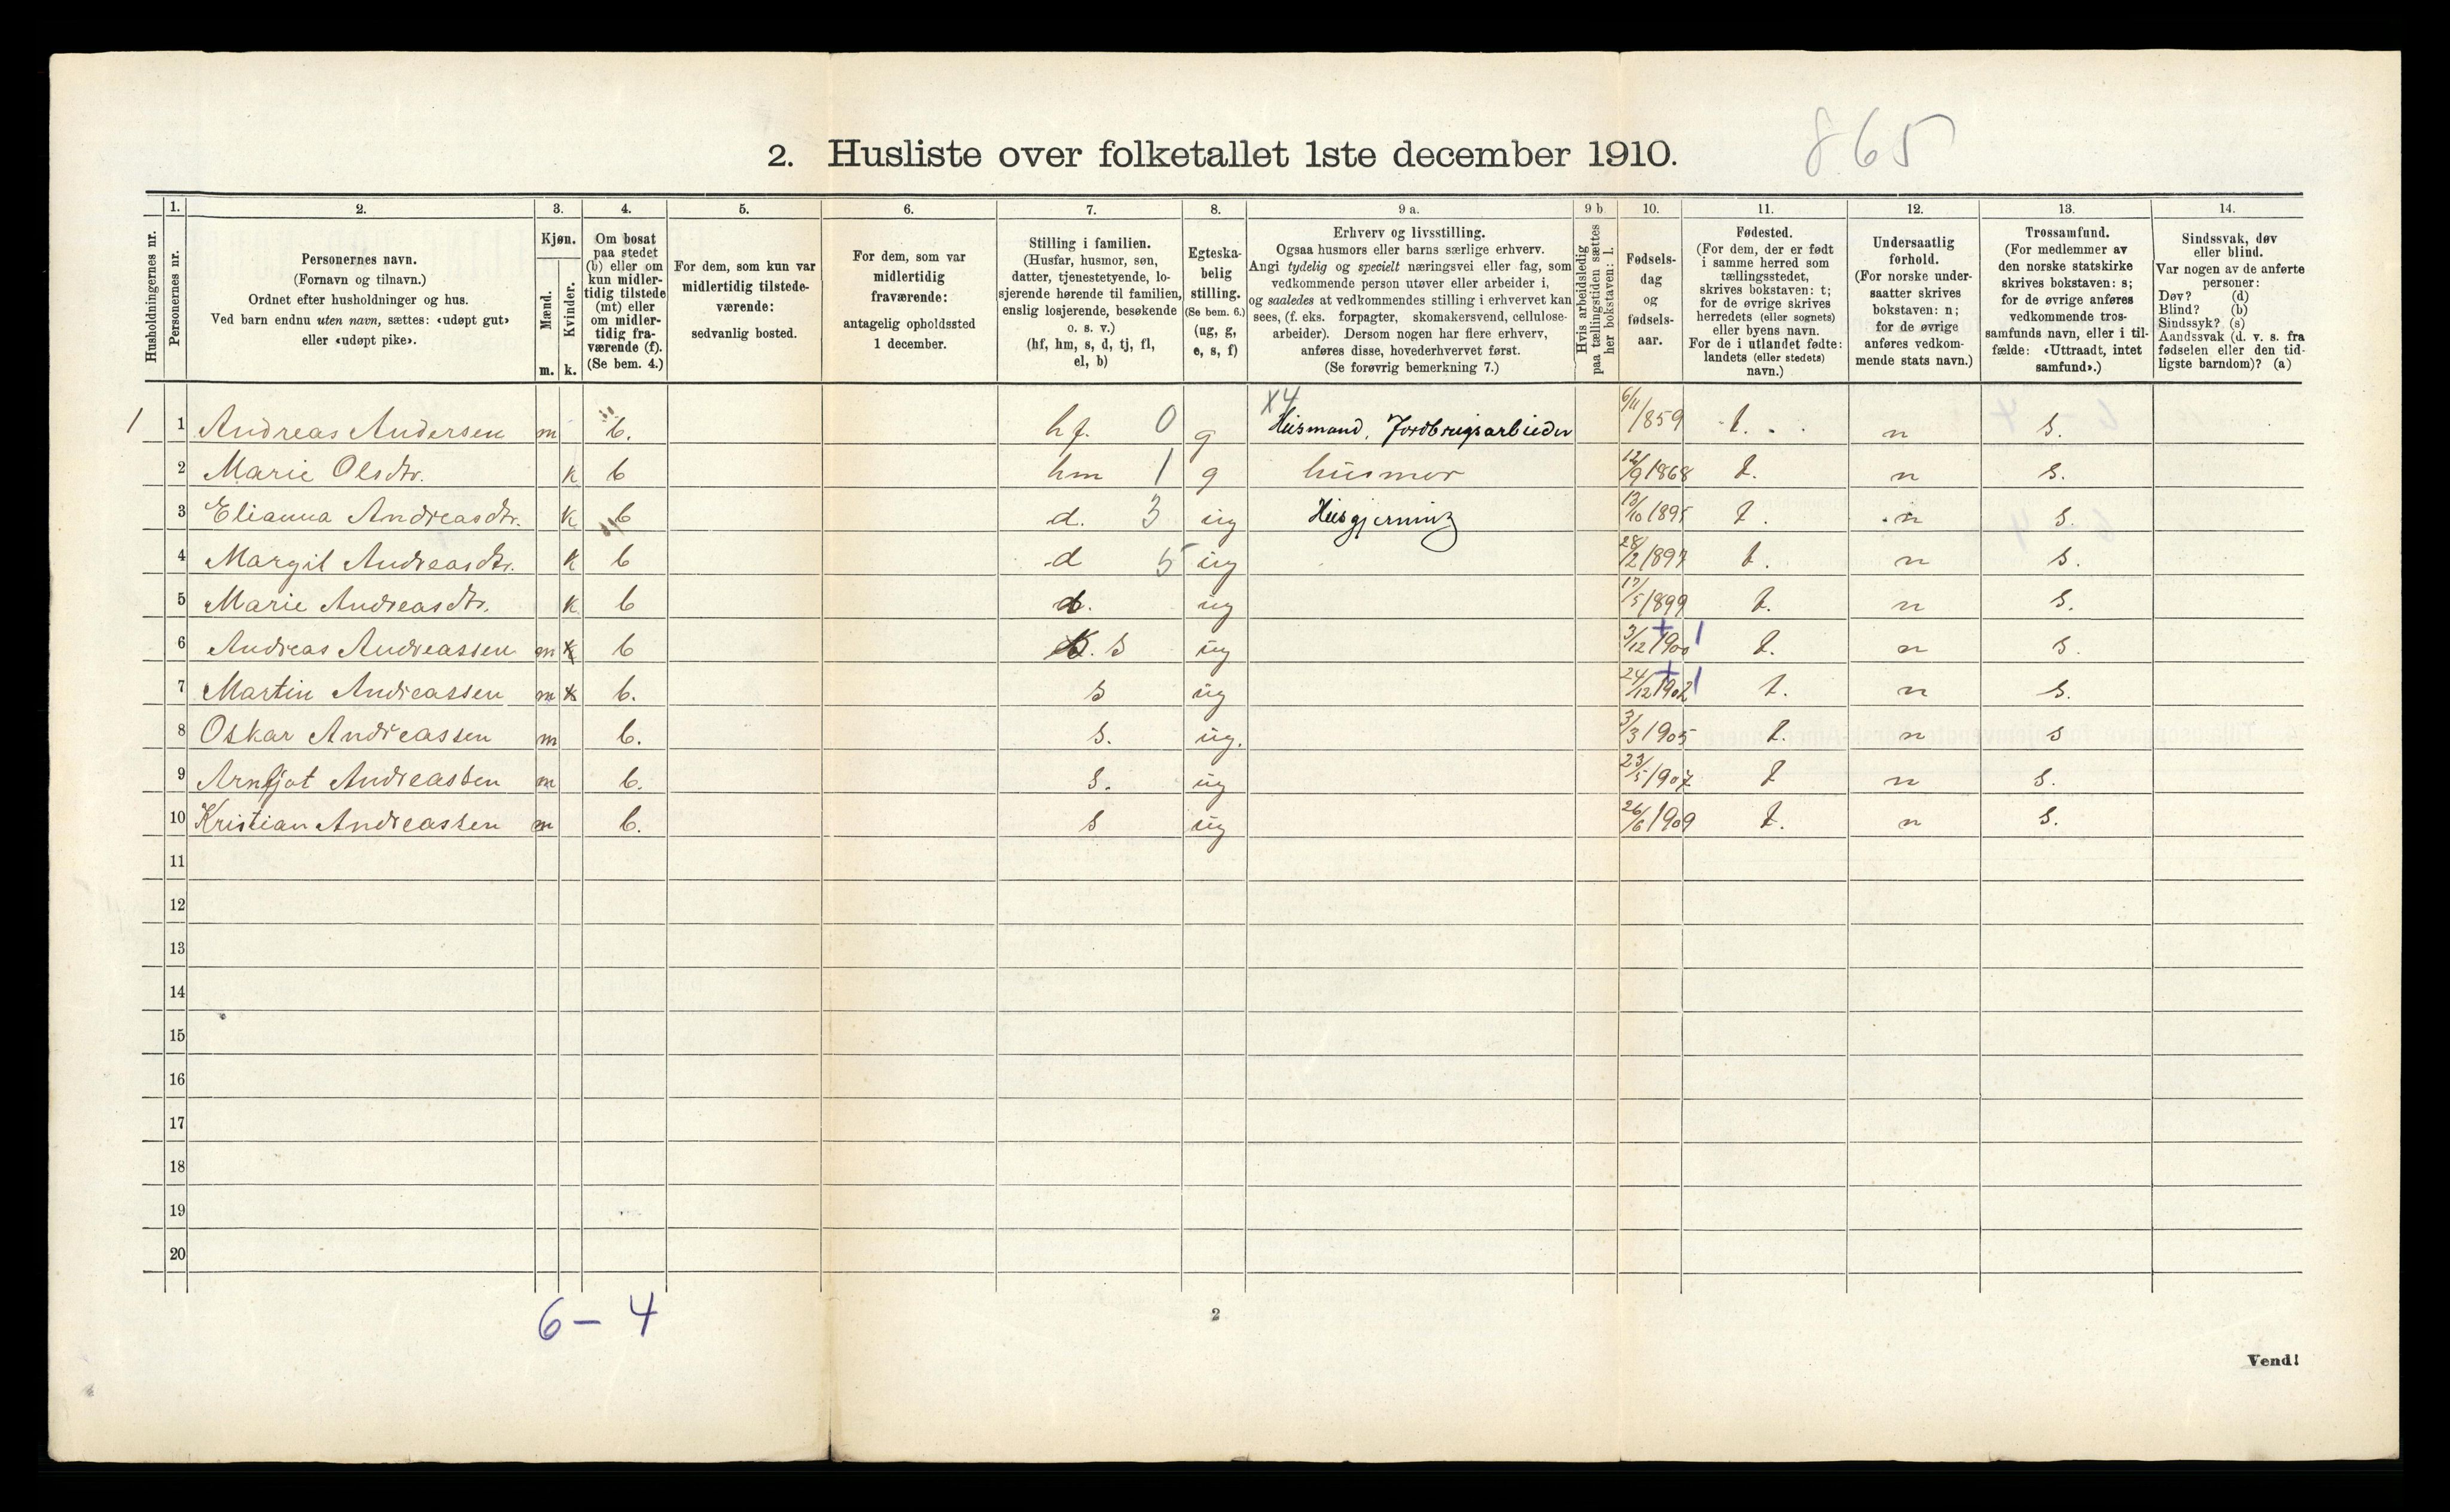 865
2. Husliste over folketallet 1ste december 1910.
1. 2. 3. 4. 5. 6. 7. 8. 9 a. 9 b 10. 11. 12. 13. 14.
Husholdningernes nr.
Personernes nr.
Personernes navn.
(Fornavn og tilnavn.)
Ordnet efter husholdninger og hus.
Ved barn endnu uten navn, sættes: «udøpt gut»
eller «udøpt pike».
Kjøn.
Mænd.
Kvinder.
m. k.
Om bosat
paa stedet
(b) eller om
kun midler-
tidig tilstede
(mt) eller
om midler-
tidig fra-
værende (f).
(Se bem. 4.)
For dem, som kun var
midlertidig tilstede-
værende:
sedvanlig bosted.
For dem, som var
midlertidig
fraværende:
antagelig opholdssted
1 december.
Stilling i familien.
(Husfar, husmor, søn,
datter, tjenestetyende, lo-
sjerende hørende til familien,
enslig losjerende, besøkende
o. s. v.)
(hf, hm, s, d, tj, fl,
el, b)
Egteska-
belig
stilling.
(Se bem. 6.)
(ug, g,
e, s, f)
Erhverv og livsstilling.
Ogsaa husmors eller barns særlige erhverv.
Angi tydelig og specielt næringsvei eller fag, som
vedkommende person utøver eller arbeider i,
og saaledes at vedkommendes stilling i erhvervet kan
sees, (f. eks. forpagter, skomakersvend, cellulose-
arbeider). Dersom nogen har flere erhverv,
anføres disse, hovederhvervet først.
(Se forøvrig bemerkning 7.)
Hvis arbeidsledig
paa tællingstiden sættes
her bokstaven: l.
Fødsels-
dag
og
fødsels-
aar.
Fødested.
(For dem, der er født
i samme herred som
tællingsstedet,
skrives bokstaven: t;
for de øvrige skrives
herredets (eller sognets)
eller byens navn.
For de i utlandet fødte:
landets (eller stedets)
navn.)
Undersaatlig
forhold.
(For norske under-
saatter skrives
bokstaven: n;
for de øvrige
anføres vedkom-
mende stats navn.)
Trossamfund.
(For medlemmer av
den norske statskirke
skrives bokstaven: s;
for de øvrige anføres
vedkommende tros-
samfunds navn, eller i til-
fælde: «Uttraadt, intet
samfund».)
Sindssvak, døv
eller blind.
Var nogen av de anførte
personer:
Døv? (d)
Blind? (b)
Sindssyk? (s)
Aandssvak (d. v. s. fra
fødselen eller den tid-
ligste barndom)? (a)
X4
1 1 Andreas Andersen m b. hf. 0 g Husmand, Jordbrugsarbieder 6/11/859 t. n s.
2 Marie Olsdtr. k b hm 1 g husmor 12/9 1868 t. n s.
3 Elianna Andreasdtr. k b d. 3 ug Husgjerning 13/10 1895 t. n s.
4 Margit Andreasdtr. k b d 5 ug 28/2 1897 t. n s.
5 Marie Andreasdtr. k b d. ug 17/5 1899 t. n s.
6 Andreas Andreassen m k b s ug 3/12 1900 + 1 t. n s.
7 Martin Andreassen m k b. s ug 24/12 1902 + 1 t. n s.
8 Oskar Andreassen m b. s. ug. 3/3 1905 t. n s
9 Arnljot Andreassen m b. s. ug 23/5 1907 t n s.
10 Kristian Andreassen m b. s ug 26/6 1909 t. n s.
11
12
13
14
15
16
17
18
19
20
6 – 4
2
Vend!